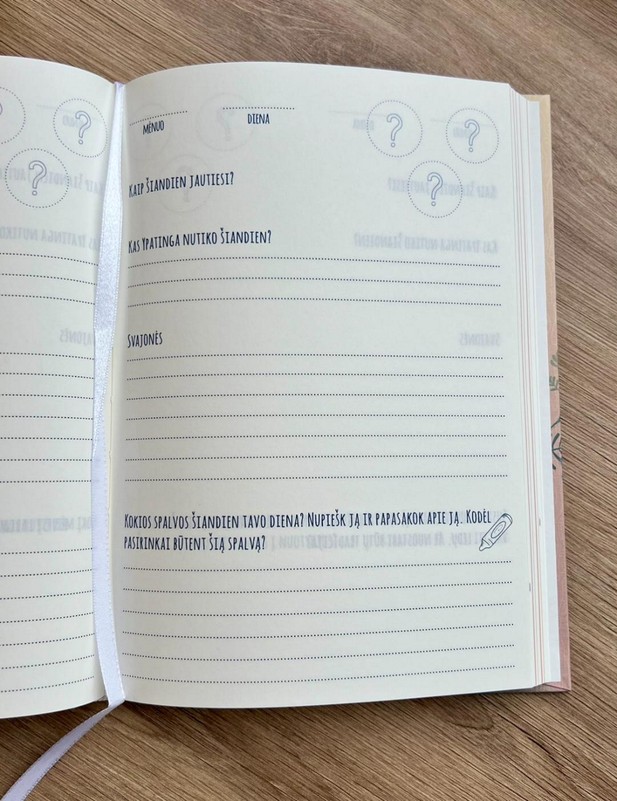 ? ? ?
MĖNUO DIENA
KAIP ŠIANDIEN JAUTIESI?
KAS YPATINGA NUTIKO ŠIANDIEN?
SVAJONĖS
KOKIOS SPALVOS ŠIANDIEN TAVO DIENA? NUPIEŠK JĄ IR PAPASAKOK APIE JĄ. KODĖL
PASIRINKAI BŪTENT ŠIĄ SPALVĄ?